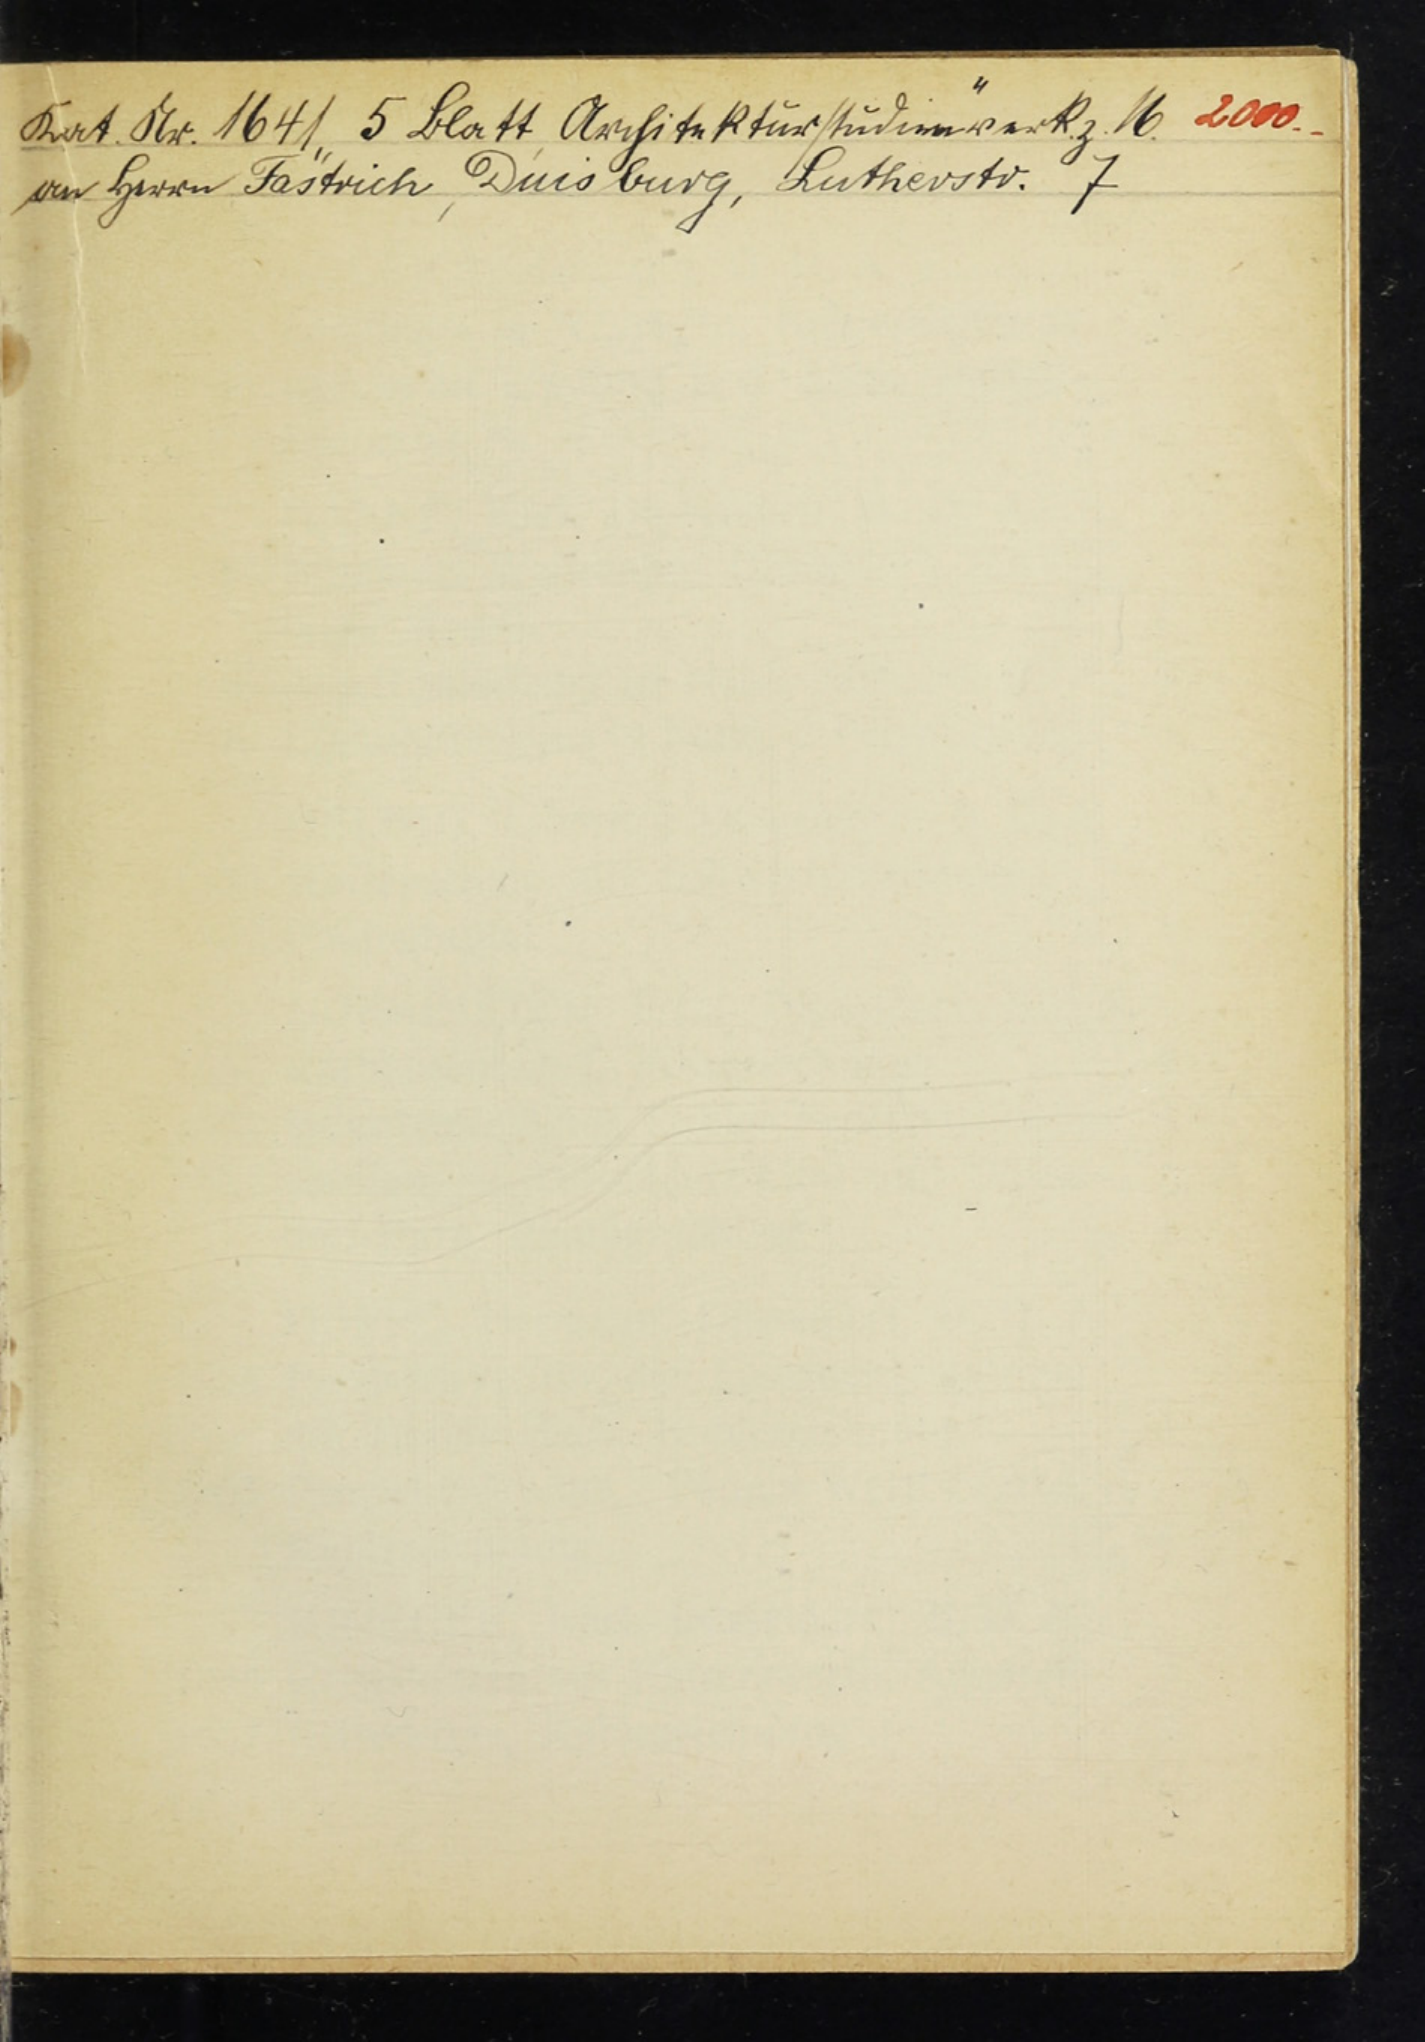 Kat. Nr. 1641 „5 Blatt Architekturstudien“ verk. z. M. 2000.-
an Herrn Fastrich, Duisburg, Lutherstr. 7